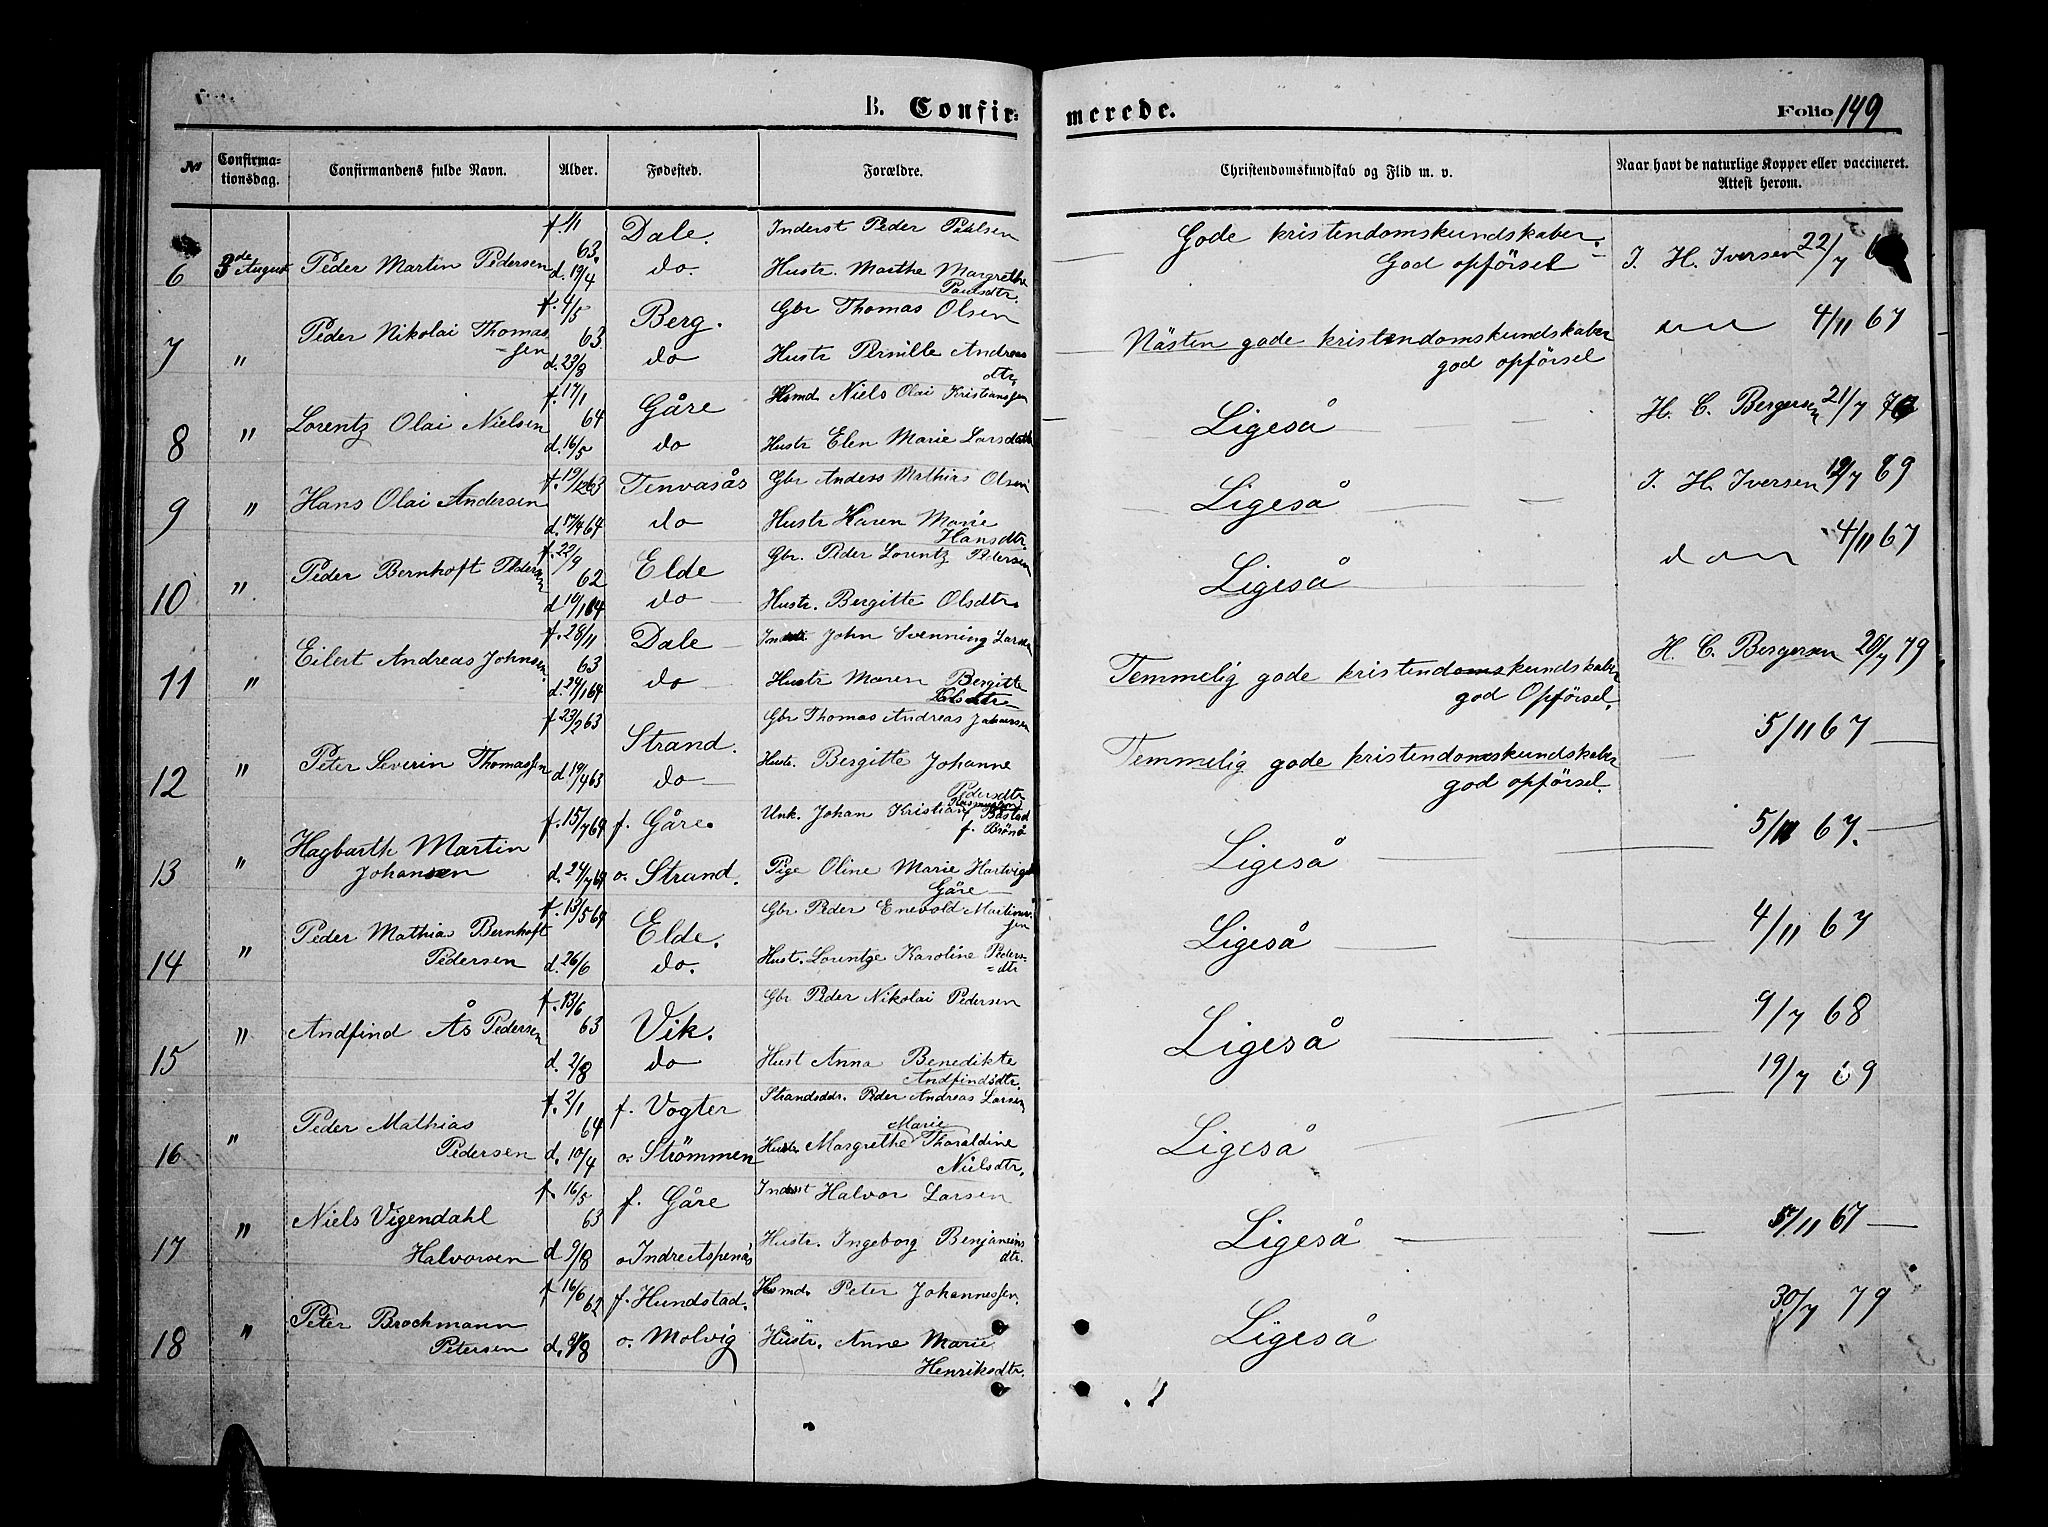 B. Confir-
merede.
Folio 149
No
Confirma-
tionsdag.
Confirmandens fulde Navn.
Alder.
Fødested.
Forældre.
Christendomskundskab og Flid m. v.
Naar havt de naturlige Kopper eller vaccineret.
Attest herom.
6 3de August Peder Martin Pedersen
f. 1/1 63.
d. 19/4
Dale.
do.
Inderst Peder Paulsen
Hustr. Marthe Margrethe
Paulsdtr.
Gode kristendomskundskaber.
God opförsel
I. H. Iversen 22/7
7 " Peder Nikolai Thomas
=sen
f. 4/5 63
d. 23/8
Berg.
do
Gbr Thomas Olsen
Hustr Pernille Andreas
dtr.
Nästen gode kristendomskundskaber
god opförsel
4/11 67
8 " Lorentz Olai Nielsen
f. 17/1 64
d. 16/5
Gåre
do
Hsmd Niels Olai Kristianssen
Hustr Elen Marie Larsdatr
Ligeså
H. C. Bergersen 21/7
9 " Hans Olai Andersen
f. 19/12 63
d. 17/4 64
Tenvasås
do
Gbr Anders Mathias Olsen
Hustr Karen Marie
Hansdtr.
Ligeså
I. H. Iversen 19/7 69
10 " Peder Bernhoft Pedersen
f. 22/9 62
d. 19/1 64
Elde
do
Gbr. Peder Lorentz Petersen
Hustr. Bergitte Olsdtr.
Ligeså
4/11 67
11 " Eilert Andreas Johnsen
f. 28/11 63
d. 24/1 64
Dale
do
Indst. John Svenning Larsen
Hustr Maren Bergitte
Temmelig gode kristendomskundskaber
god Opförsel.
H. C. Bergersen 26/7 79
12 " Peter Severin Thomassen
f. 23/2 63
d. 19/4 63
Strand.
do
Gbr Thomas Andreas Johansen
Hustr. Bergitte Johanne
Pedersdtr
Temmelig gode kristendomskundskaber
god opförsel.
5/11 67
13 " Hagbarth Martin
Johansen
f. 15/7 64
d. 24/7 64
f. Gåre.
o. Strand.
Unk. Johan Kristian Rasmussen Båstad
f. Brönö
Pige Oline Marie Hartvigs
Gåre
Ligeså
5/11 67.
14 " Peder Mathias Bernhoft
Pedersen
f. 13/5 64
d. 26/6
Elde.
do.
Gbr Peder Enevold Martinus-
sen
Hust. Lorentze Karoline Peders-
=dtr
Ligeså
4/11 67
15 " Andfind Ås Pedersen
f. 13/6 63
d. 2/8
Vik.
do
Gbr Peder Nikolai Pedersen
Hust Anna Benedikte
Andfindsdtr.
Ligeså
9/7 68
16 " Peder Mathias
Pedersen
f. 2/1 64
d. 10/4
f. Vogter
o. Strömmen
Strandsddr. Peder Andreas Larsen
Hustr Margrethe Marie Thoraldine
Nielsdtr.
Ligeså
19/7 69
17 " Niels Vigendahl
Halvorsen
f. 16/5 63
d 9/8
f. Gåre
o Indreitspenås
Inderst Halvor Larsen
Hustr. Ingeborg Benjamins
dtr.
Ligeså
5/11 67
18 " Peter Brochmann
Petersen
f 16/6 62
f. Hundstad.
o. Molvig
Hsmd. Peter Johannessen.
Hustr. Anne Marie
Henriksdtr.
Ligeså
30/7 79